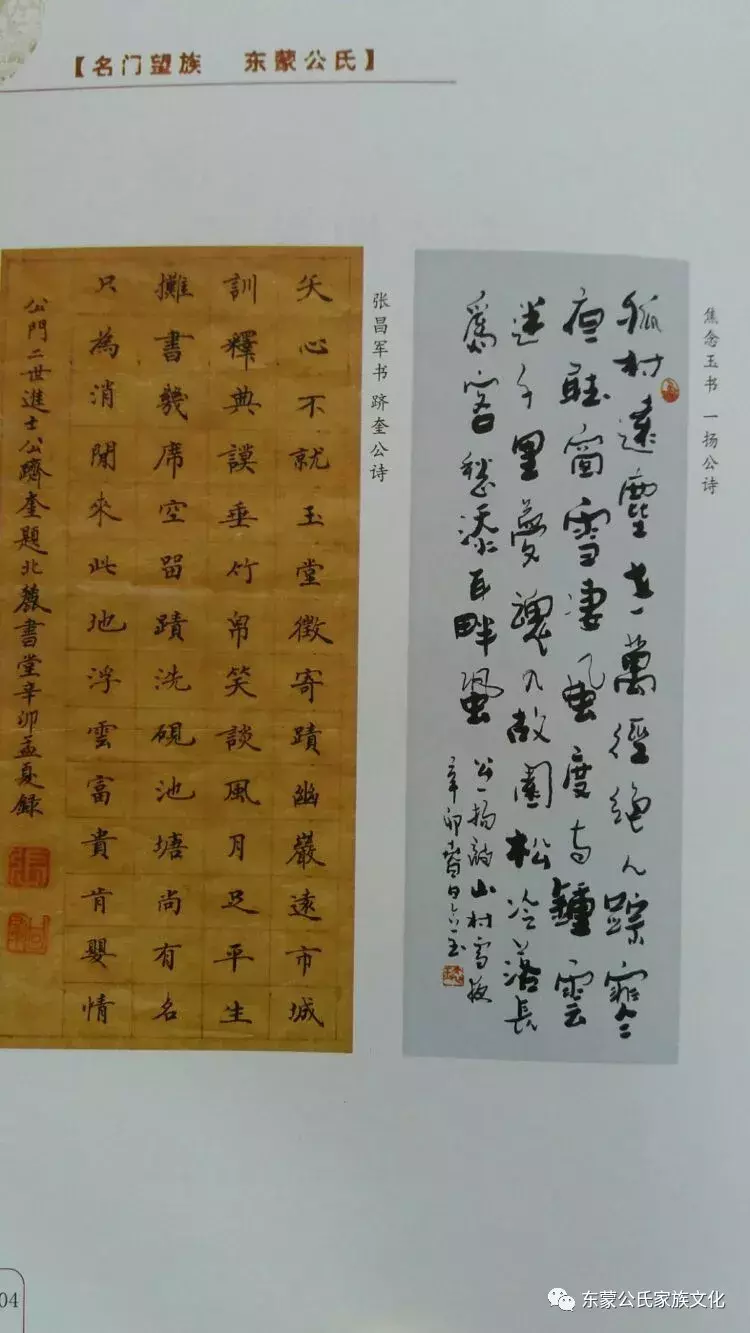 【名门望族 东蒙公氏】
焦念玉书 一扬公诗
孤村遠塵世萬徑絕人踪寒
夜窗雪凄風度寺鐘雲
迷千里夢魂入故園松冷落長
爲客愁添耳畔風
公一揚詩山村雪夜
辛卯春日念玉
张昌军书 跻奎公诗
矢心不就玉堂徵寄蹟幽巖遠市城
訓釋典謨垂竹帛笑談風月足平生
攤書幾席空留蹟洗硯池塘尚有名
只為消閒來此地浮雲富貴肯嬰情
公門二世進士公躋奎題北麓書堂辛卯孟夏録
04
东蒙公氏家族文化